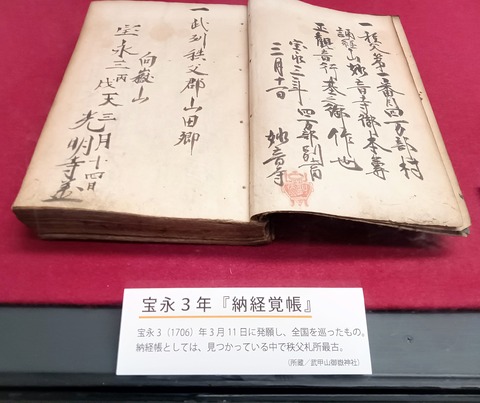 一 秩父第一番目四万部村
誦経山妙音寺御本尊
正観音行基之御作也
宝永三年 四万部別当
三月十一日 妙音寺
一 武州秩父郡山田郷
向嶽山
宝永三丙戌天三月十四日
光明寺
宝永３年『納経覚帳』
宝永３（1706）年３月11日に発願し、全国を巡ったもの。
納経帳としては、見つかっている中で秩父札所最古。
（所蔵／武甲山御嶽神社）